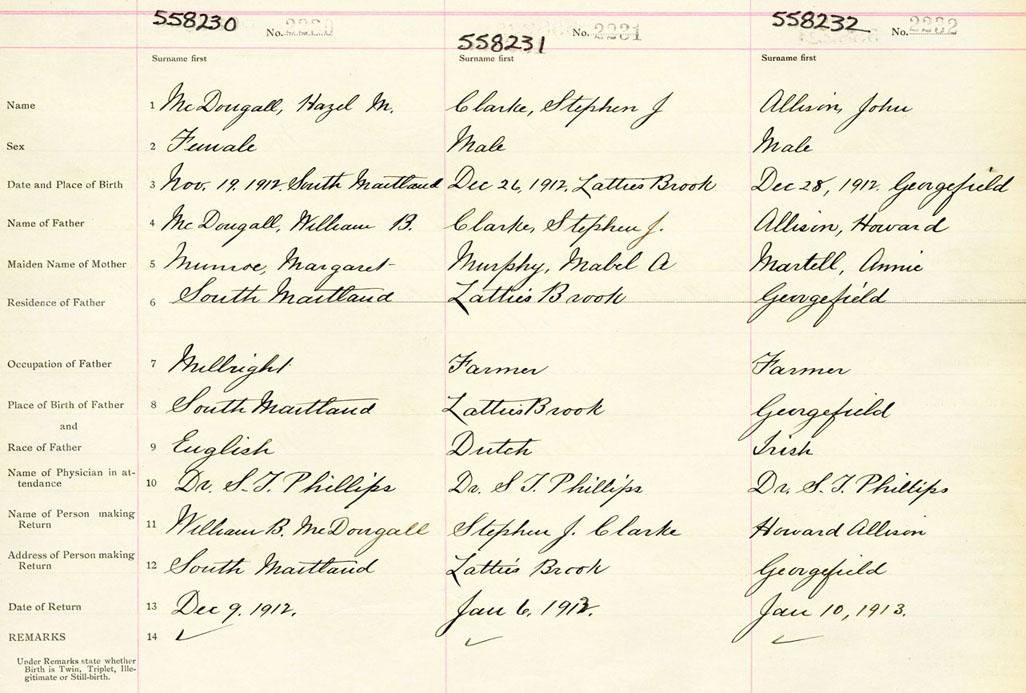 558230 No. 2230 558231 No. 2231 558232 No. 2232
Surname first Surname first Surname first
Name 1 McDougall, Hazel M. Clarke, Stephen J Allison, John
Sex 2 Female Male Male
Date and Place of Birth 3 Nov. 19. 1912. South Maitland Dec 26, 1912. Latties Brook Dec 28, 1912. Georgefield
Name of Father 4 McDougall, William B. Clarke, Stephen J. Allison, Howard
Maiden Name of Mother 5 Munroe, Margaret Murphy, Mabel A Martell, Annie
Residence of Father 6 South Maitland Latties Brook Georgefield
Occupation of Father 7 Millright Farmer Farmer
Place of Birth of Father 8 South Maitland Latties Brook Georgefield
and
Race of Father 9 English Dutch Irish
Name of Physician in at-
tendance 10 Dr. S. T. Phillips Dr. S T. Phillips Dr. S. T. Phillips
Name of Person making
Return 11 William B. McDougall Stephen J. Clarke Howard Allison
Address of Person making
Return 12 South Maitland Latties Brook Georgefield
Date of Return 13 Dec 9. 1912. Jan 6, 1913. Jan 10, 1913.
REMARKS 14
Under Remarks state whether
Birth is Twin, Triplet, Ille-
gitimate or Still-birth.